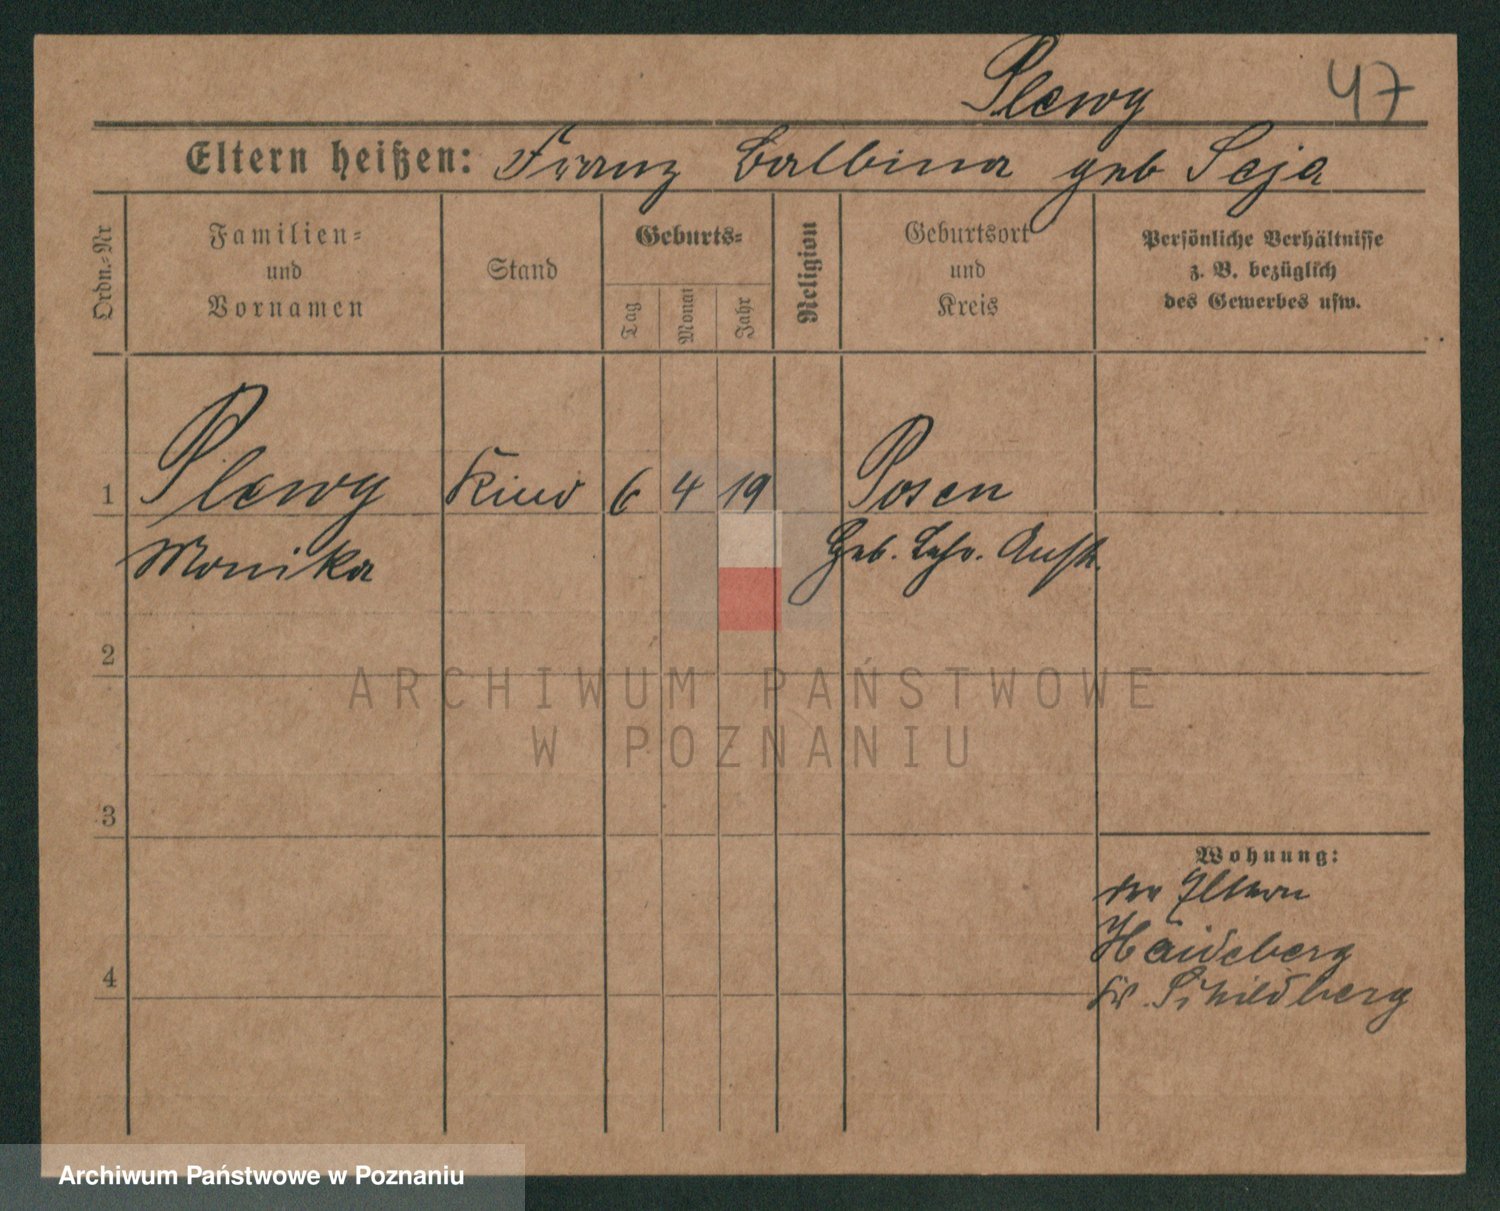 Plewy 47
Eltern heißen: Franz Balbina geb Seja
Ordn.-Nr
Familien-
und
Vornamen
Stand
Geburts-
Tag
Monat
Jahr
Religion
Geburtsort
und
Kreis
Persönliche Verhältnisse
z. B. bezüglich
des Gewerbes usw.
1 Plewy Kind 6 4 19 Posen
Monika Geb. Lehr. Anst.
2
ARCHIWUM PAŃSTWOWE
W POZNANIU
3
Wohnung:
der Eltern
Haideberg
4
Kr. Schildberg
Archiwum Państwowe w Poznaniu